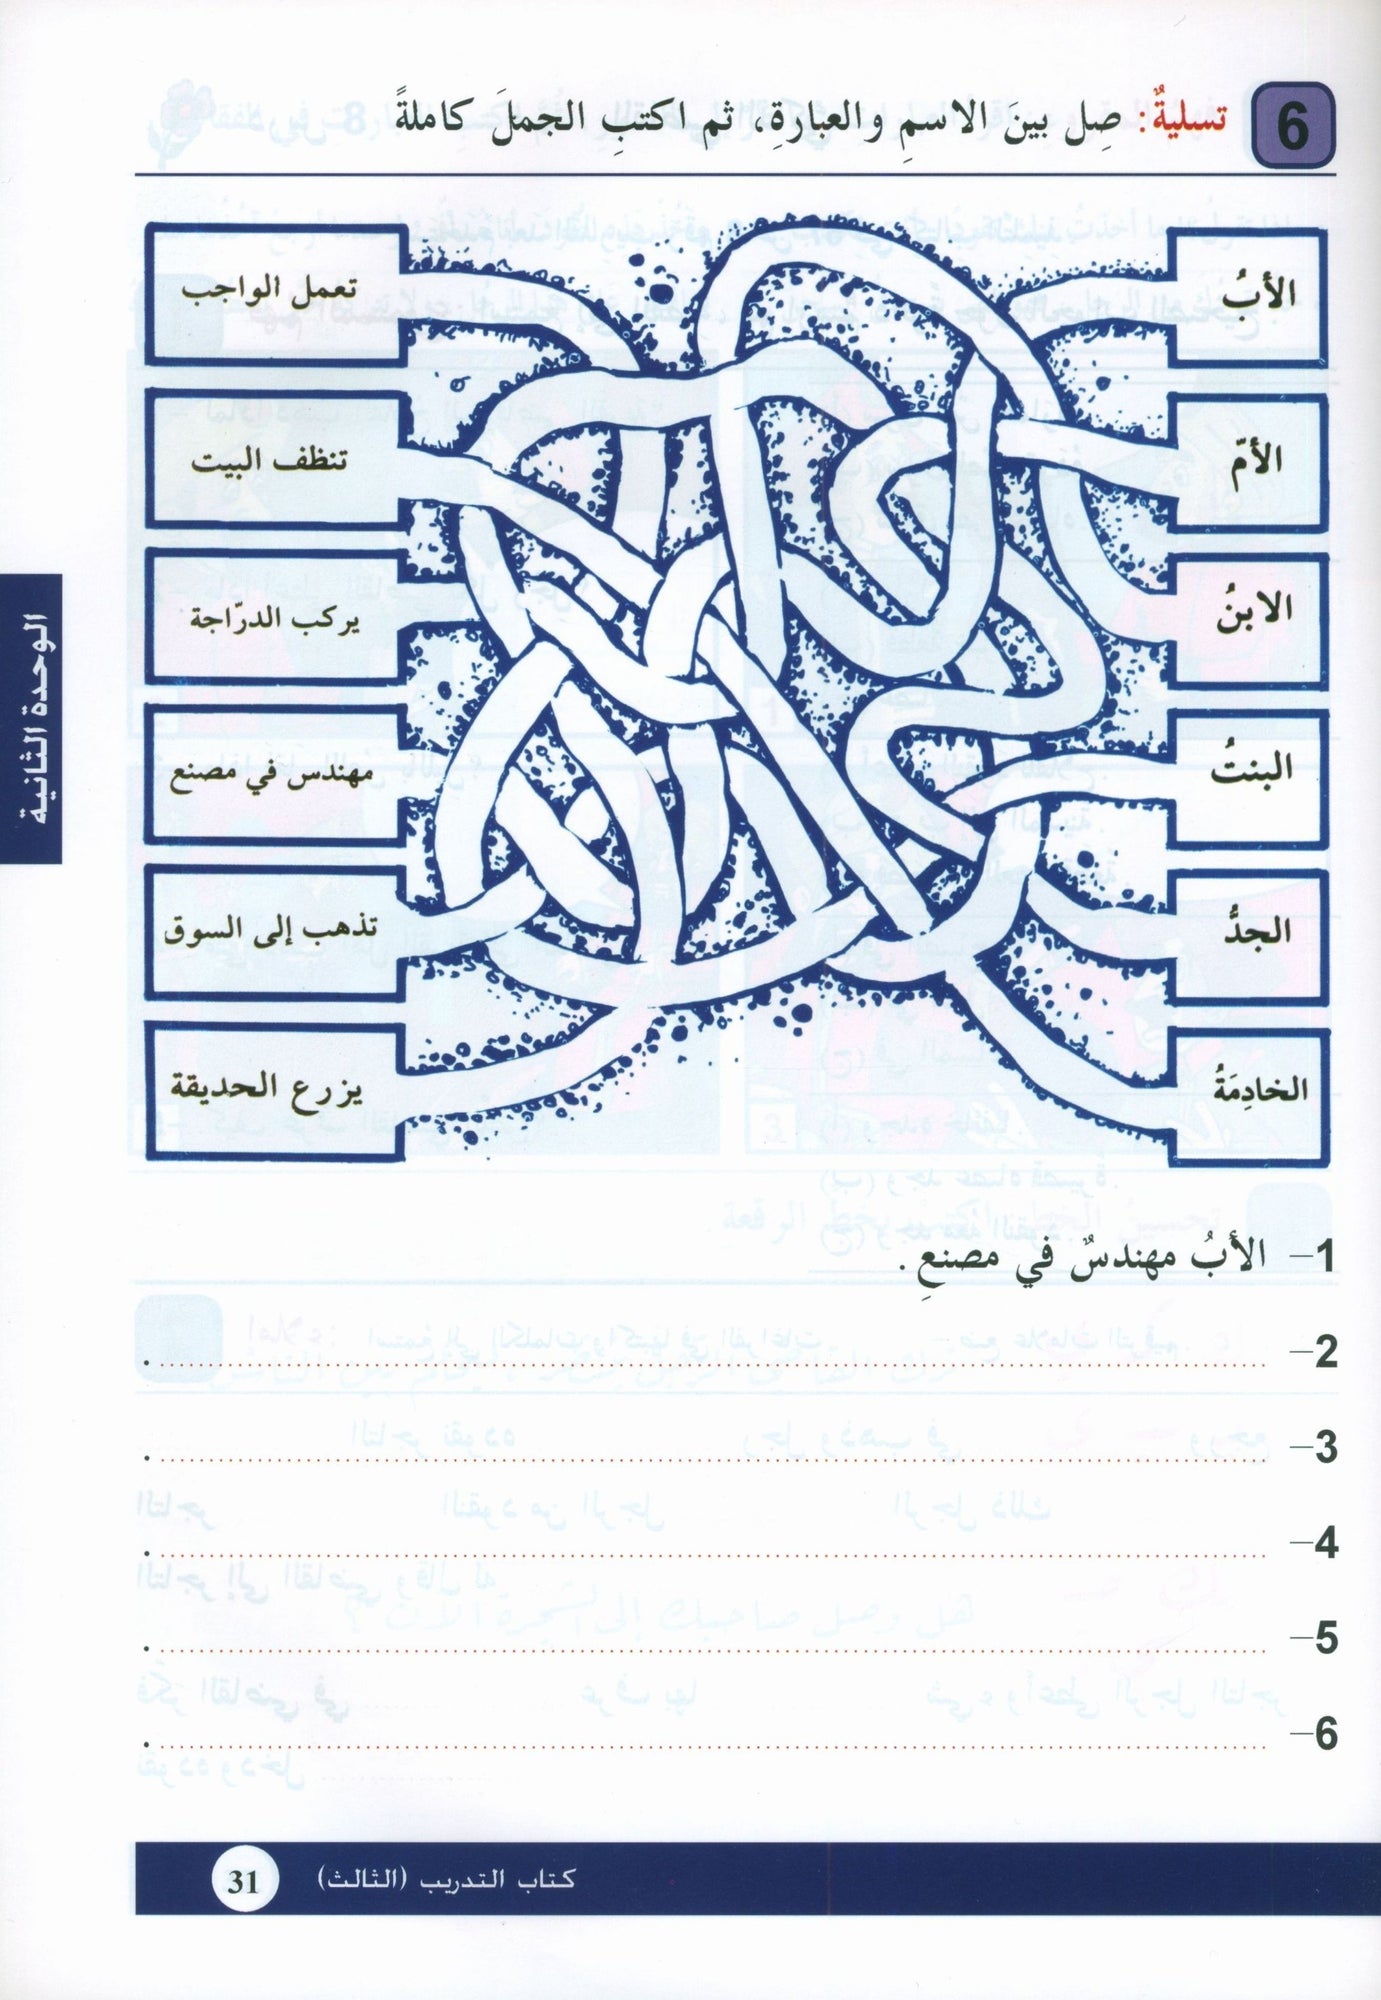 6 تسليةٌ: صِل بينَ الاسمِ والعبارةِ، ثم اكتبِ الجملَ كاملةً
الأبُ
تعمل الواجب
الأمّ
تنظف البيت
الابنُ
يركب الدرّاجة
البنتُ
مهندس في مصنع
الجدُّ
تذهب إلى السوق
الخادِمَةُ
يزرع الحديقة
الوحدة الثانية
1– الأبُ مهندسٌ في مصنعِ.
2– .
3– .
4– .
5– .
6– .
كتاب التدريب (الثالث) 31